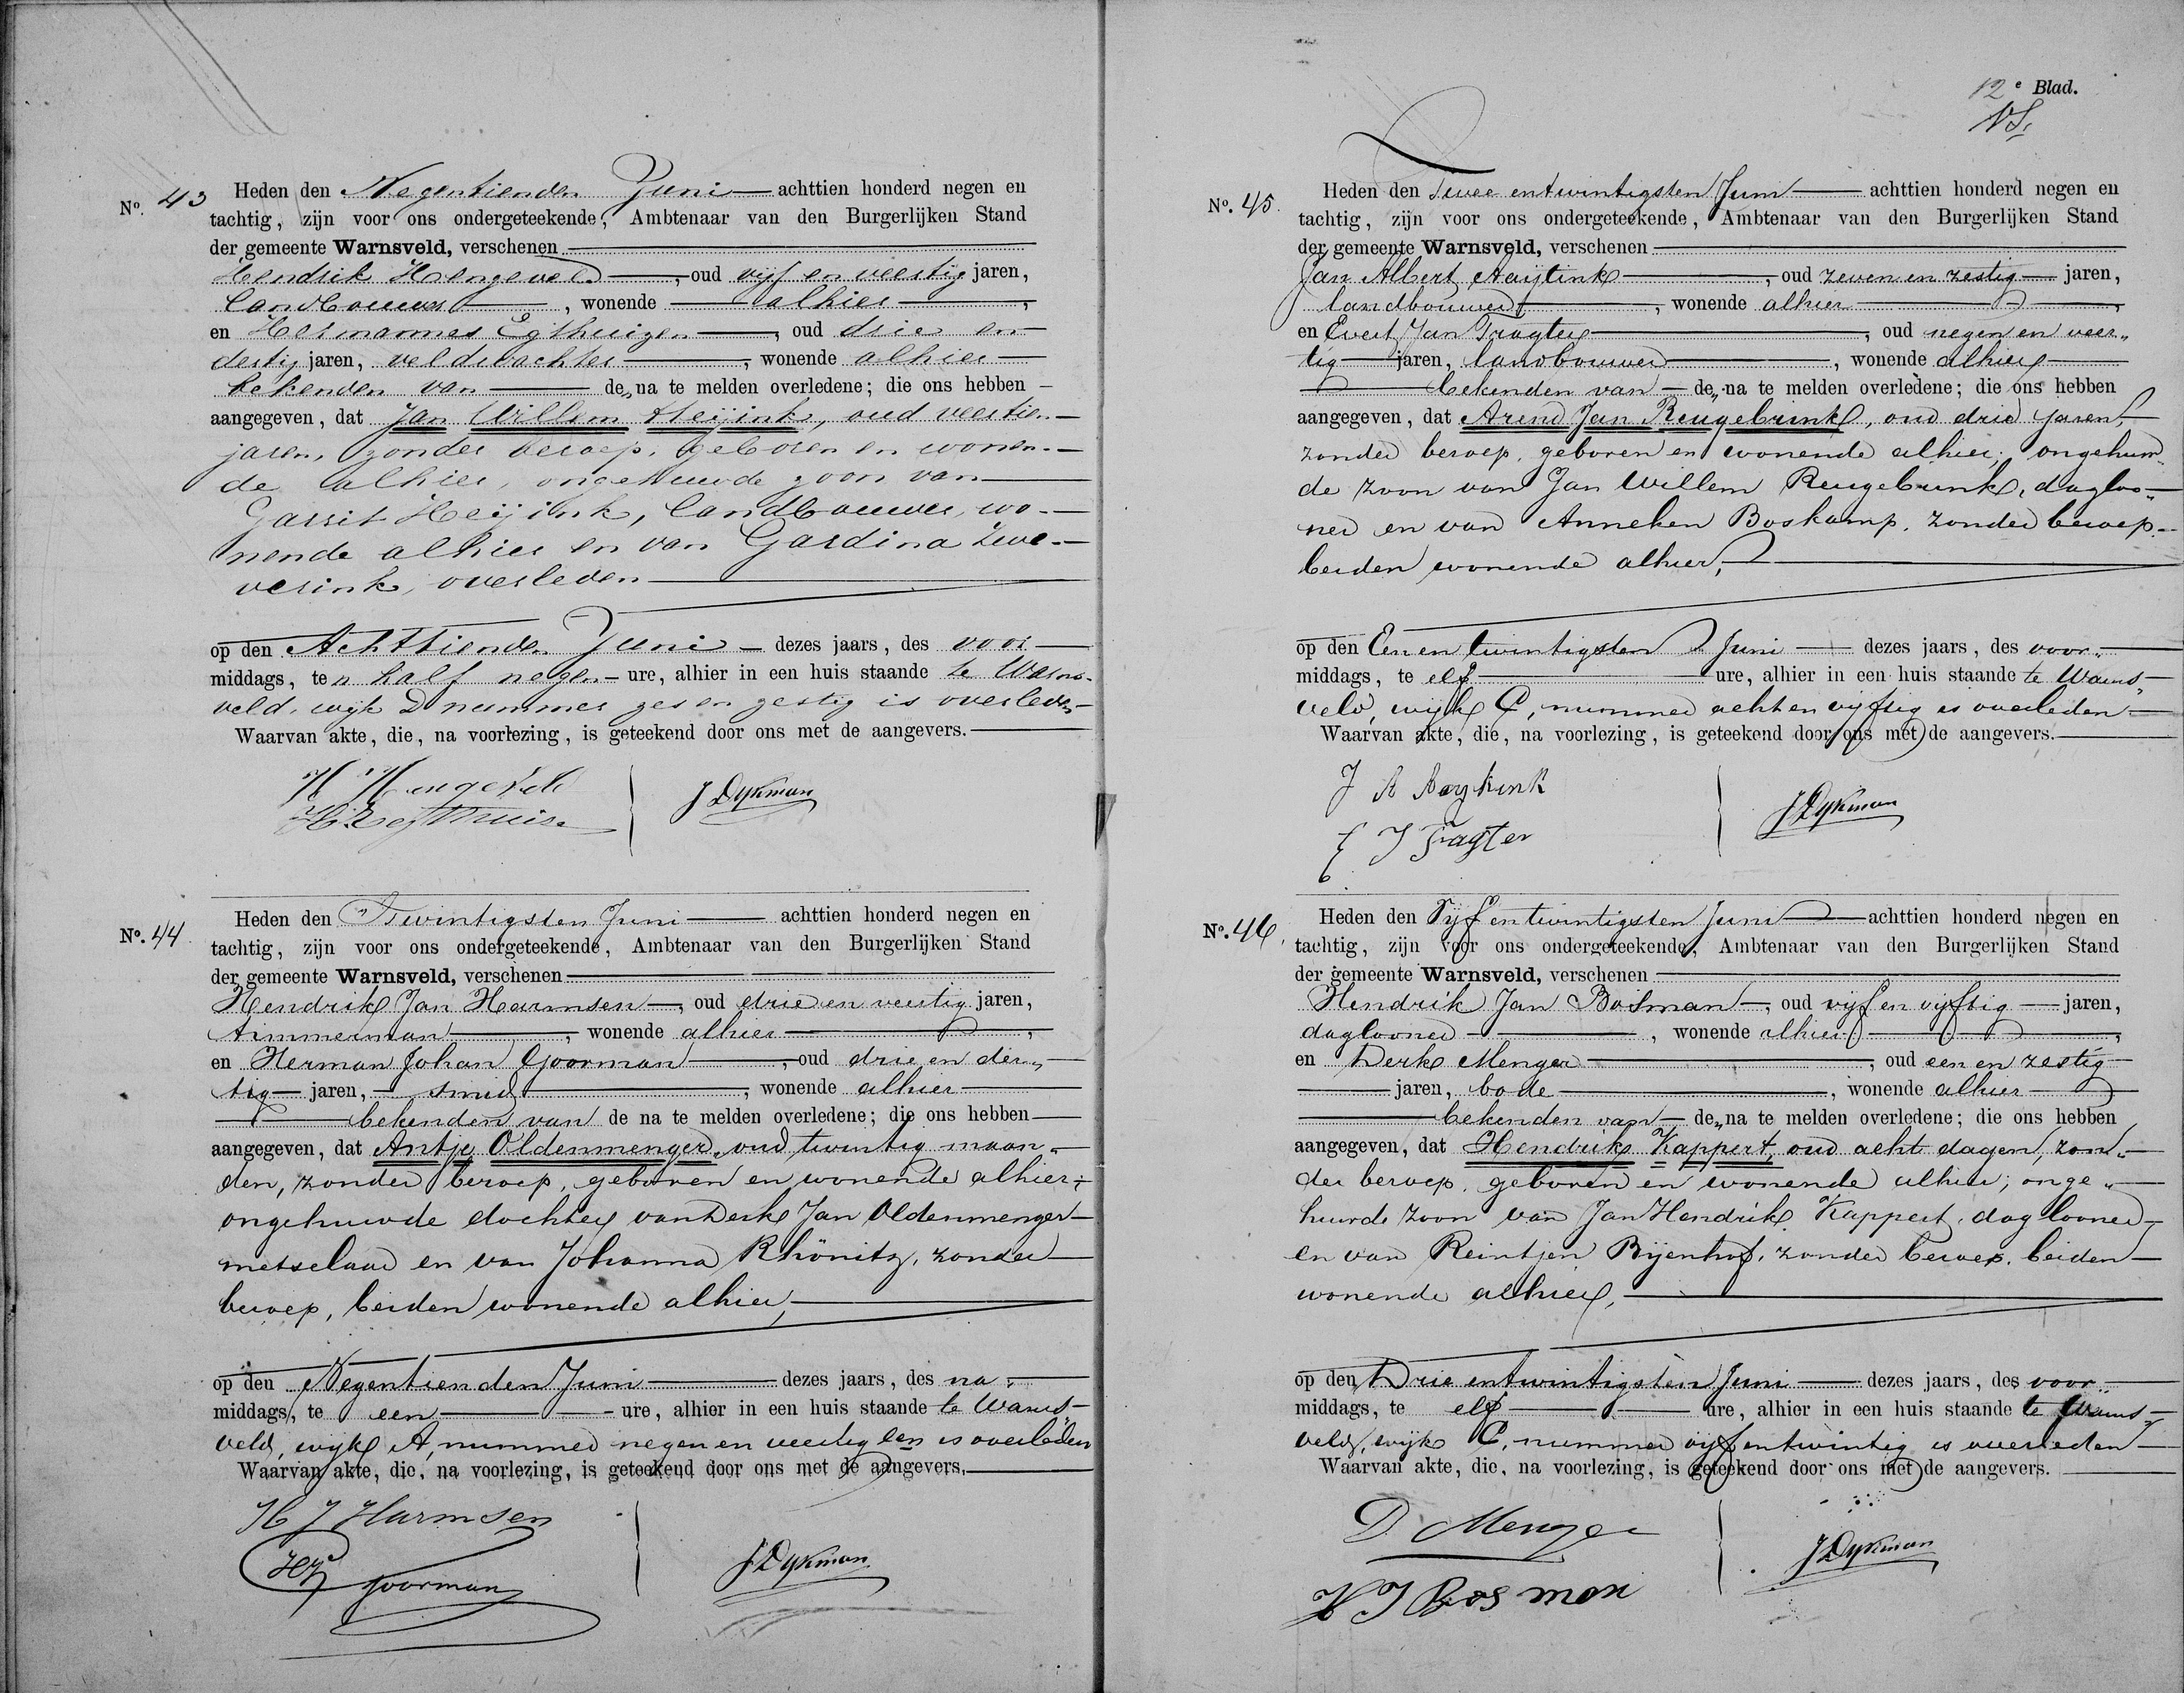 No. 43 Heden den Negentienden Juni achttien honderd negen en
tachtig, zijn voor ons ondergeteekende, Ambtenaar van den Burgerlijken Stand
der gemeente Warnsveld, verschenen
Hendrik Hengeveld, oud vijf en veertig jaren,
landbouwer, wonende alhier,
en Hermannes Egthuizen, oud drie en
dertig jaren, veldwachter, wonende alhier
bekenden van de„ na te melden overledene; die ons hebben
aangegeven, dat Jan Willem Heijink, oud veertien
jaren, zonder beroep, geboren en wonen-
de alhier, ongehuwde zoon van
Garrit Heijink, landbouwer, wo-
nende alhier en van Gardina Zwe-
verink, overleden
op den Achttienden Juni dezes jaars, des voor
middags, ten half negen ure, alhier in een huis staande te Warns-
veld, wijk D nummer zes en zestig is overleden
Waarvan akte, die, na voorlezing, is geteekend door ons met de aangevers.
H Hengeveld
JDykman
No. 44 Heden den Twintigsten Juni achttien honderd negen en
tachtig, zijn voor ons ondergeteekende, Ambtenaar van den Burgerlijken Stand
der gemeente Warnsveld, verschenen
Hendrik Jan Harmsen, oud drie en veertig jaren,
timmerman, wonende alhier,
en Herman Johan Goorman, oud drie en der„
tig jaren, smid, wonende alhier
bekenden van de na te melden overledene; die ons hebben
aangegeven, dat Antje Oldenmenger, oud twintig maan„
den, zonder beroep, geboren en wonende alhier;
ongehuwde dochter van Derk Jan Oldenmenger
metselaar en van Johanna Rhönitz, zonder
beroep, beiden wonende alhier,
op den Negentienden Juni dezes jaars, des na„
middags, te een ure, alhier in een huis staande te Warns„
veld, wijk A, nummer negen en veertig een is overleden
Waarvan akte, die, na voorlezing, is geteekend door ons met de aangevers.
H J Harmsen
HJ Goorman
JDykman
12e Blad.
No. 45. Heden den Twee en twintigsten Juni achttien honderd negen en
tachtig, zijn voor ons ondergeteekende, Ambtenaar van den Burgerlijken Stand
der gemeente Warnsveld, verschenen
Jan Albert Aaijtink, oud zeven en zestig jaren,
landbouwer, wonende alhier,
en Evert Jan Tragter, oud negen en veer„
tig jaren, landbouwer, wonende alhier
bekenden van de„ na te melden overledene; die ons hebben
aangegeven, dat Arend Jan Reugebrink, oud drie jaren,
zonder beroep, geboren en wonende alhier; ongehuw„
de zoon van Jan Willem Reugebrink, dagloo„
ner en van Anneken Boskamp, zonder beroep
beiden wonende alhier,
op den Een en twintigsten Juni dezes jaars, des voor„
middags, te elf ure, alhier in een huis staande te Warns„
veld, wijk C, nummer acht en vijftig is overleden
Waarvan akte, die, na voorlezing, is geteekend door ons met de aangevers.
J A Aaytink
E J Tragter
JDykman
No. 46. Heden den Vijf en twintigsten Juni achttien honderd negen en
tachtig, zijn voor ons ondergeteekende, Ambtenaar van den Burgerlijken Stand
der gemeente Warnsveld, verschenen
Hendrik Jan Bosman, oud vijf en vijftig jaren,
daglooner, wonende alhier,
en Derk Menger, oud een en zestig
jaren, bode, wonende alhier
bekenden van de„ na te melden overledene; die ons hebben
aangegeven, dat Hendrik Kappert, oud acht dagen, zon„
der beroep, geboren en wonende alhier; onge„
huwde zoon van Jan Hendrik Kappert, daglooner
en van Reintjen Bijenhof, zonder beroep, beiden
wonende alhier,
op den Drie en twintigsten Juni dezes jaars, des voor„
middags, te elf ure, alhier in een huis staande te Warns„
veld, wijk C, nummer vijf en twintig is overleden
Waarvan akte, die, na voorlezing, is geteekend door ons met de aangevers.
D Menger
H J Bosman
JDykman